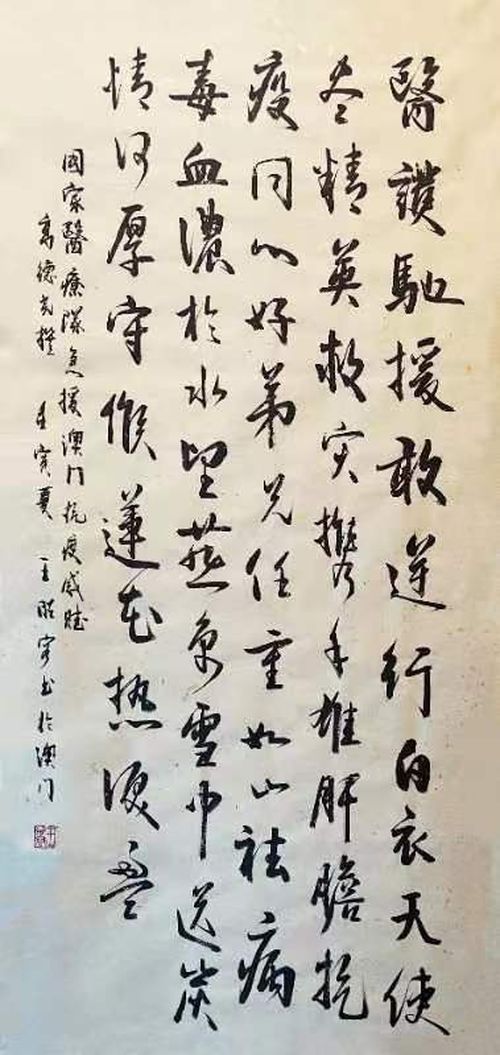 醫護馳援敢逆行白衣天使
尽精英救灾攜手雄肝膽抗
疫同心好弟兄任重如山祛病
毒血濃於水望燕京雪中送炭
情何厚守候蓮花熱淚盈
國家醫療隊急援澳門抗疫感賦
高德光撰 壬寅夏 王昭书於澳門